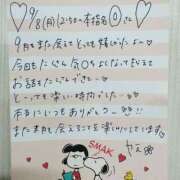 9/8(月)にちらの本指名◎さん
9月もまた会えてとっても嬉しかったよ〜♡
今日もたくさん気〇ちよくなってもらえて
お話もたくさんできて
と〜っても楽しい時間でした…♡
本当にいつもありがとう〜!!♡
また来月も会えることを楽しみにしてます
SMAK